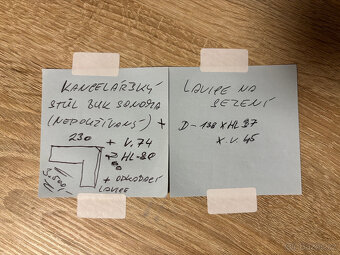 KANCELÁŘSKÝ
STŮL BUK SONOMA
(NEPOUŽÍVANÝ) +
230 + V. 74
HL-80
+ ODKLÁDACÍ
LAVICE
LAVICE NA
SEZENÍ
D-138 X HL 37
X V. 45